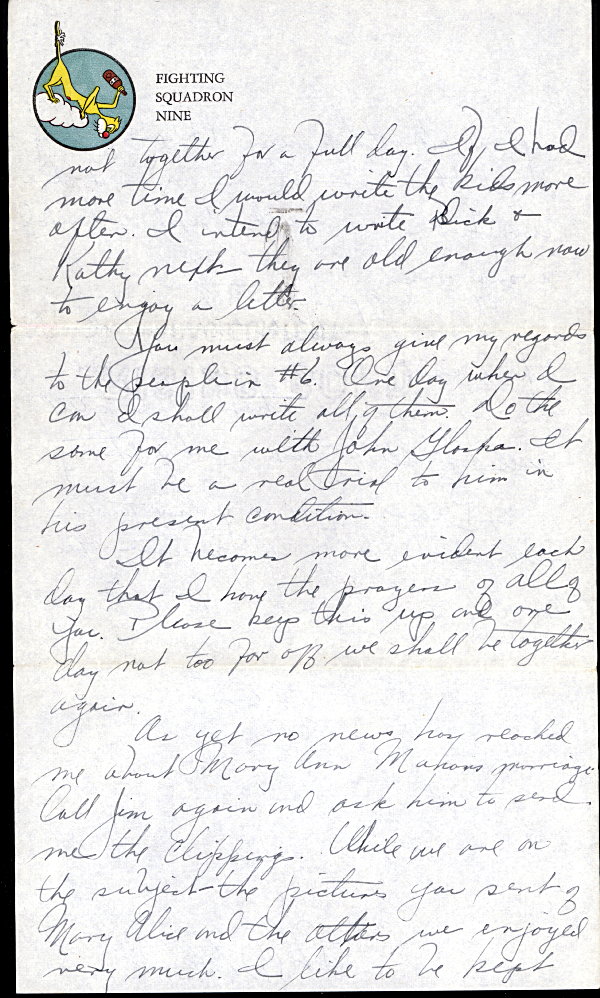 FIGHTING
SQUADRON
NINE
not together for a full day. If I had
more time I would write the kids more
often. I intend to write Dick &
Kathy next they are old enough now
to enjoy a letter.
You must always give my regards
to the people in #6. One day when I
can I shall write all of them. Do the
same for me with John. It
must be a real trial to him in
his present condition.
It becomes more evident each
day that I have the prayers of all of
you. Please keep this up and one
day not too far off we shall be together
again.
As yet no news has reached
me about Mary Ann Mahons marriage.
Call Jim again and ask him to send
me the clippings. While we are on
the subject the pictures you sent of
Mary Alice and the others we enjoyed
very much. I like to be kept